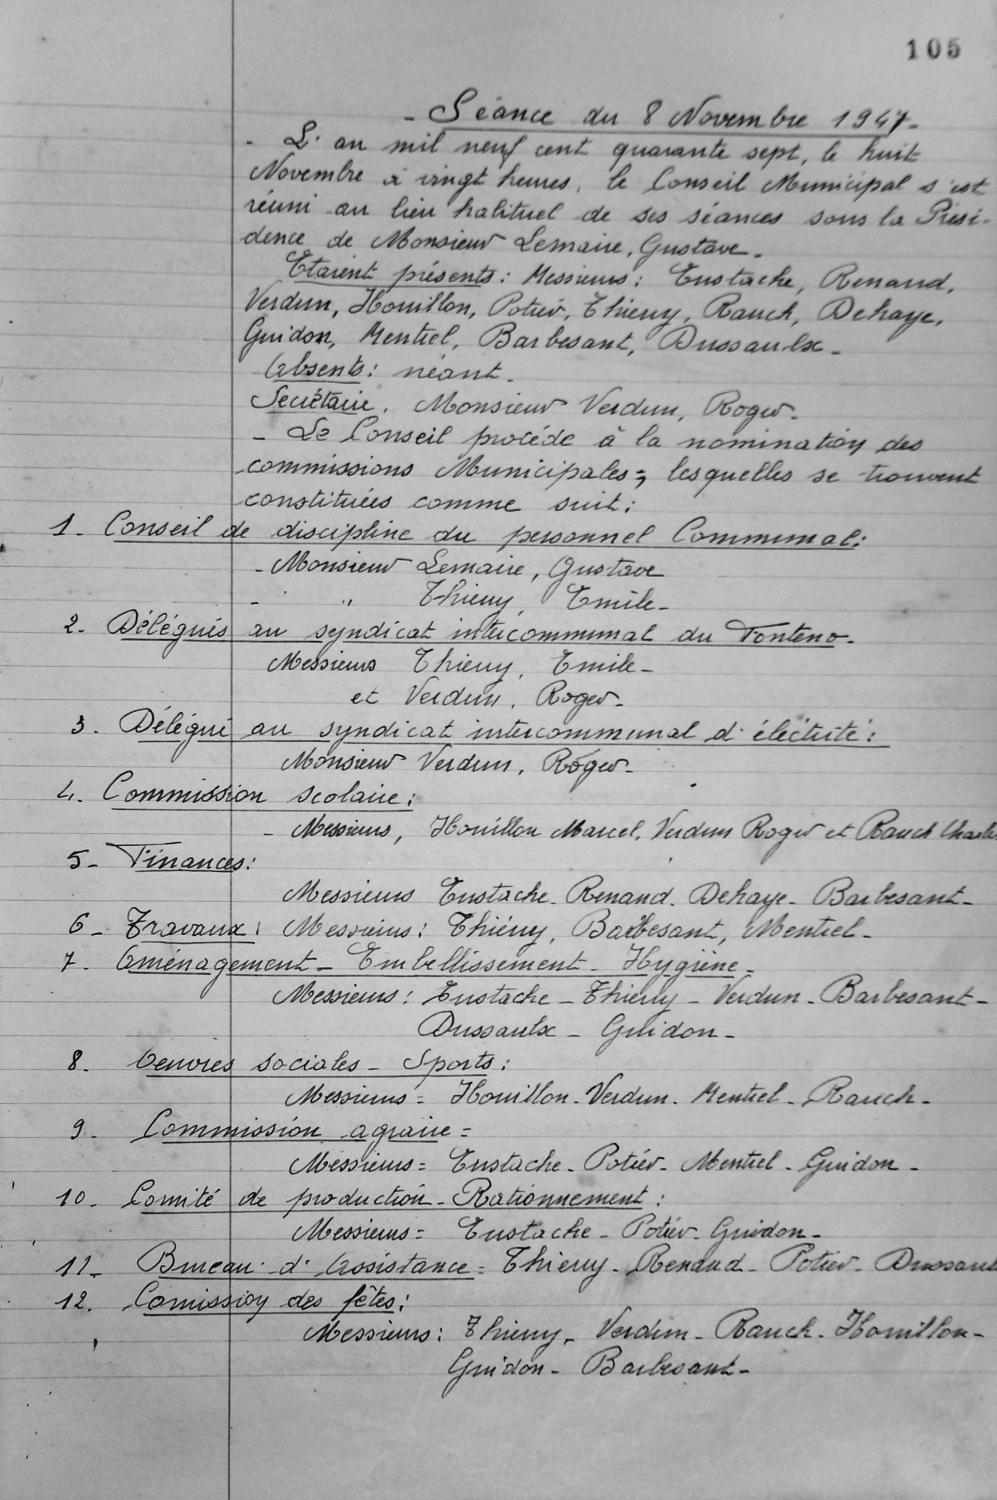 105
- Séance du 8 Novembre 1947-
- L'an mil neuf cent quarante sept, le huit
Novembre à vingt heures, le Conseil Municipal s'est
réuni au lieu habituel de ses séances sous la Prési-
dence de Monsieur Lemaire, Gustave-
Etaient présents: Messieurs: Eustache, Renaud,
Verdun, Houillon, Potier, Thierry, Rauch, Dehaye,
Guidon, Mentiel, Barbesant, Dussaulx-
Absents: néant.
Secrétaire. Monsieur Verdun, Roger-
- Le Conseil procède à la nomination des
commissions Municipales; lesquelles se trouvent
constituées comme suit:
1- Conseil de discipline du personnel Communal:
- Monsieur Lemaire, Gustave
- " Thierry, Emile-
2- Délégués au syndicat intercommunal du Fonteno-
Messieurs Thierry, Emile-
et Verdun, Roger-
3. Délégué au syndicat intercommunal d'éléctrité:
Monsieur Verdun, Roger-
4. Commission scolaire:
- Messieurs, Houillon Marcel, Verdun Roger et Rauch Charles
5- Finances:
Messieurs Eustache. Renaud. Dehaye- Barbesant-
6- Travaux: Messieurs: Thiérry, Barbesant, Mentiel-
7- Aménagement- Embellissement- Hygiène-
Messieurs: Eustache- Thierry- Verdun- Barbesant-
Dussaulx- Guidon-
8- Oeuvres sociales- Sports:
Messieurs= Houillon- Verdun- Mentiel- Rauch-
9- Commission agraire=
Messieurs= Eustache- Potier- Mentiel- Guidon-
10- Comité de production- Rationnement:
Messieurs= Eustache- Potier- Guidon-
11- Bureau d'Assistance= Thierry- Renaud- Potier- Dussaul
12. Comission des fêtes:
Messieurs: Thierry- Verdun- Rauch- Houillon-
Guidon- Barbesant-